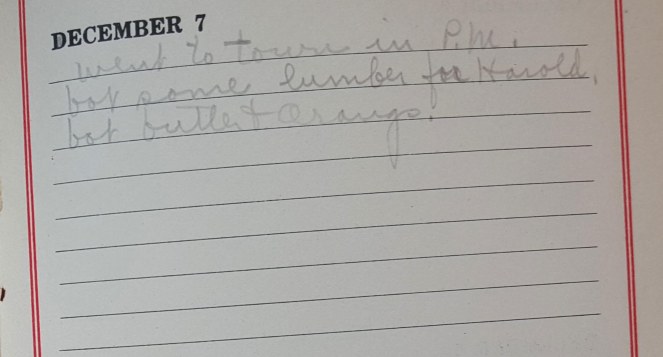 DECEMBER 7
went to town in P.M.
bot some lumber for Harold.
bot butter + Orangs.